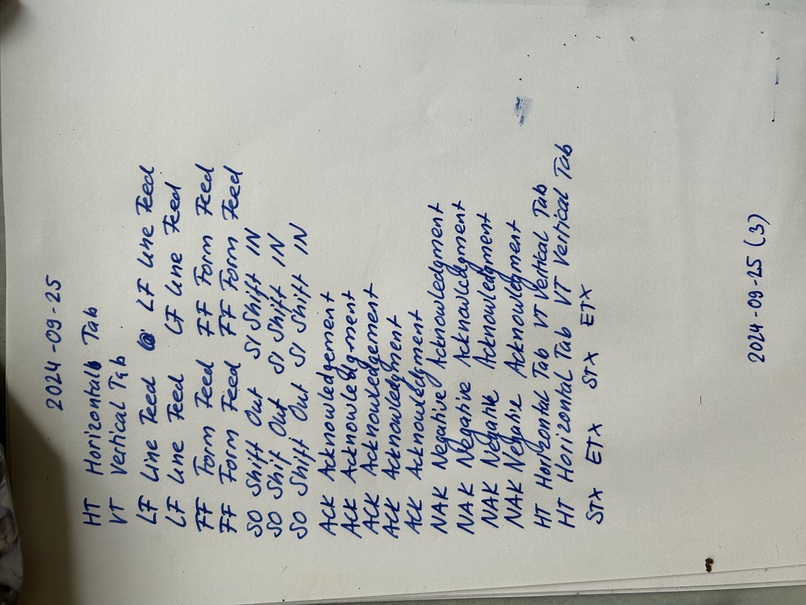 2024-09-25
HT Horizontal Tab
VT Vertical Tab
LF Line Feed LF Line Feed
LF Line Feed LF Line Feed
FF Form Feed FF Form Feed
FF Form Feed FF Form Feed
SO Shift Out SI Shift IN
SO Shift Out SI Shift IN
SO Shift Out SI Shift IN
ACK Acknowledgement
ACK Acknowledgment
ACK Acknowledgement
ACK Acknowledgment
ACK Acknowledgment
NAK Negative Acknowledgment
NAK Negative Acknowledgment
NAK Negative Acknowledgment
NAK Negative Acknowledgment
HT Horizontal Tab VT Vertical Tab
HT Horizontal Tab VT Vertical Tab
STX ETX STX ETX
2024-09-25 (3)